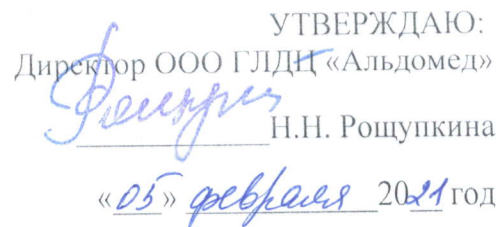 УТВЕРЖДАЮ:
Директор ООО ГЛДЦ «Альдомед»
Н.Н. Рощупкина
«05» февраля 2021 год